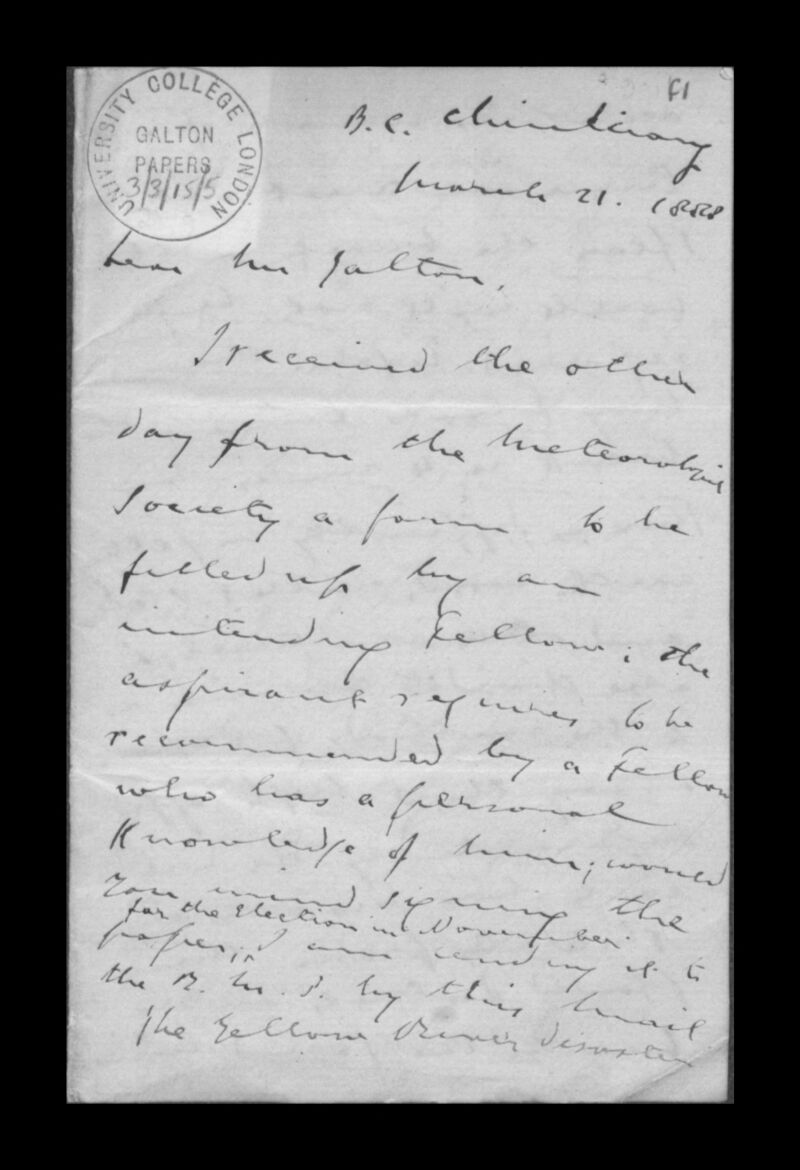 F1
UNIVERSITY COLLEGE LONDON
GALTON
PAPERS
3/3/15/5
B.C. Chinkiang
March 21. 1888
Dear Mr Galton,
I received the other
day from the Meteorological
Society a form to be
filled up by an
intending Fellow; the
aspirant requires to be
recommended by a Fellow
who has a personal
Knowledge of him; would
you mind signing the
for the Election in November
paper, I am sending it to
the R. M. S. by this mail
The Yellow River disaster